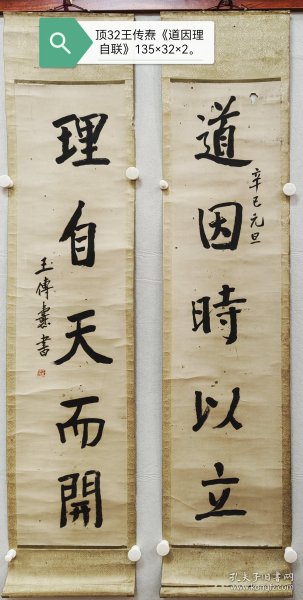 顶32王传焘《道因理
自联》135×32×2。
道因時以立
辛巳元旦
理自天而開
王傳燾書
孔夫子旧书网
www.kongfz.com